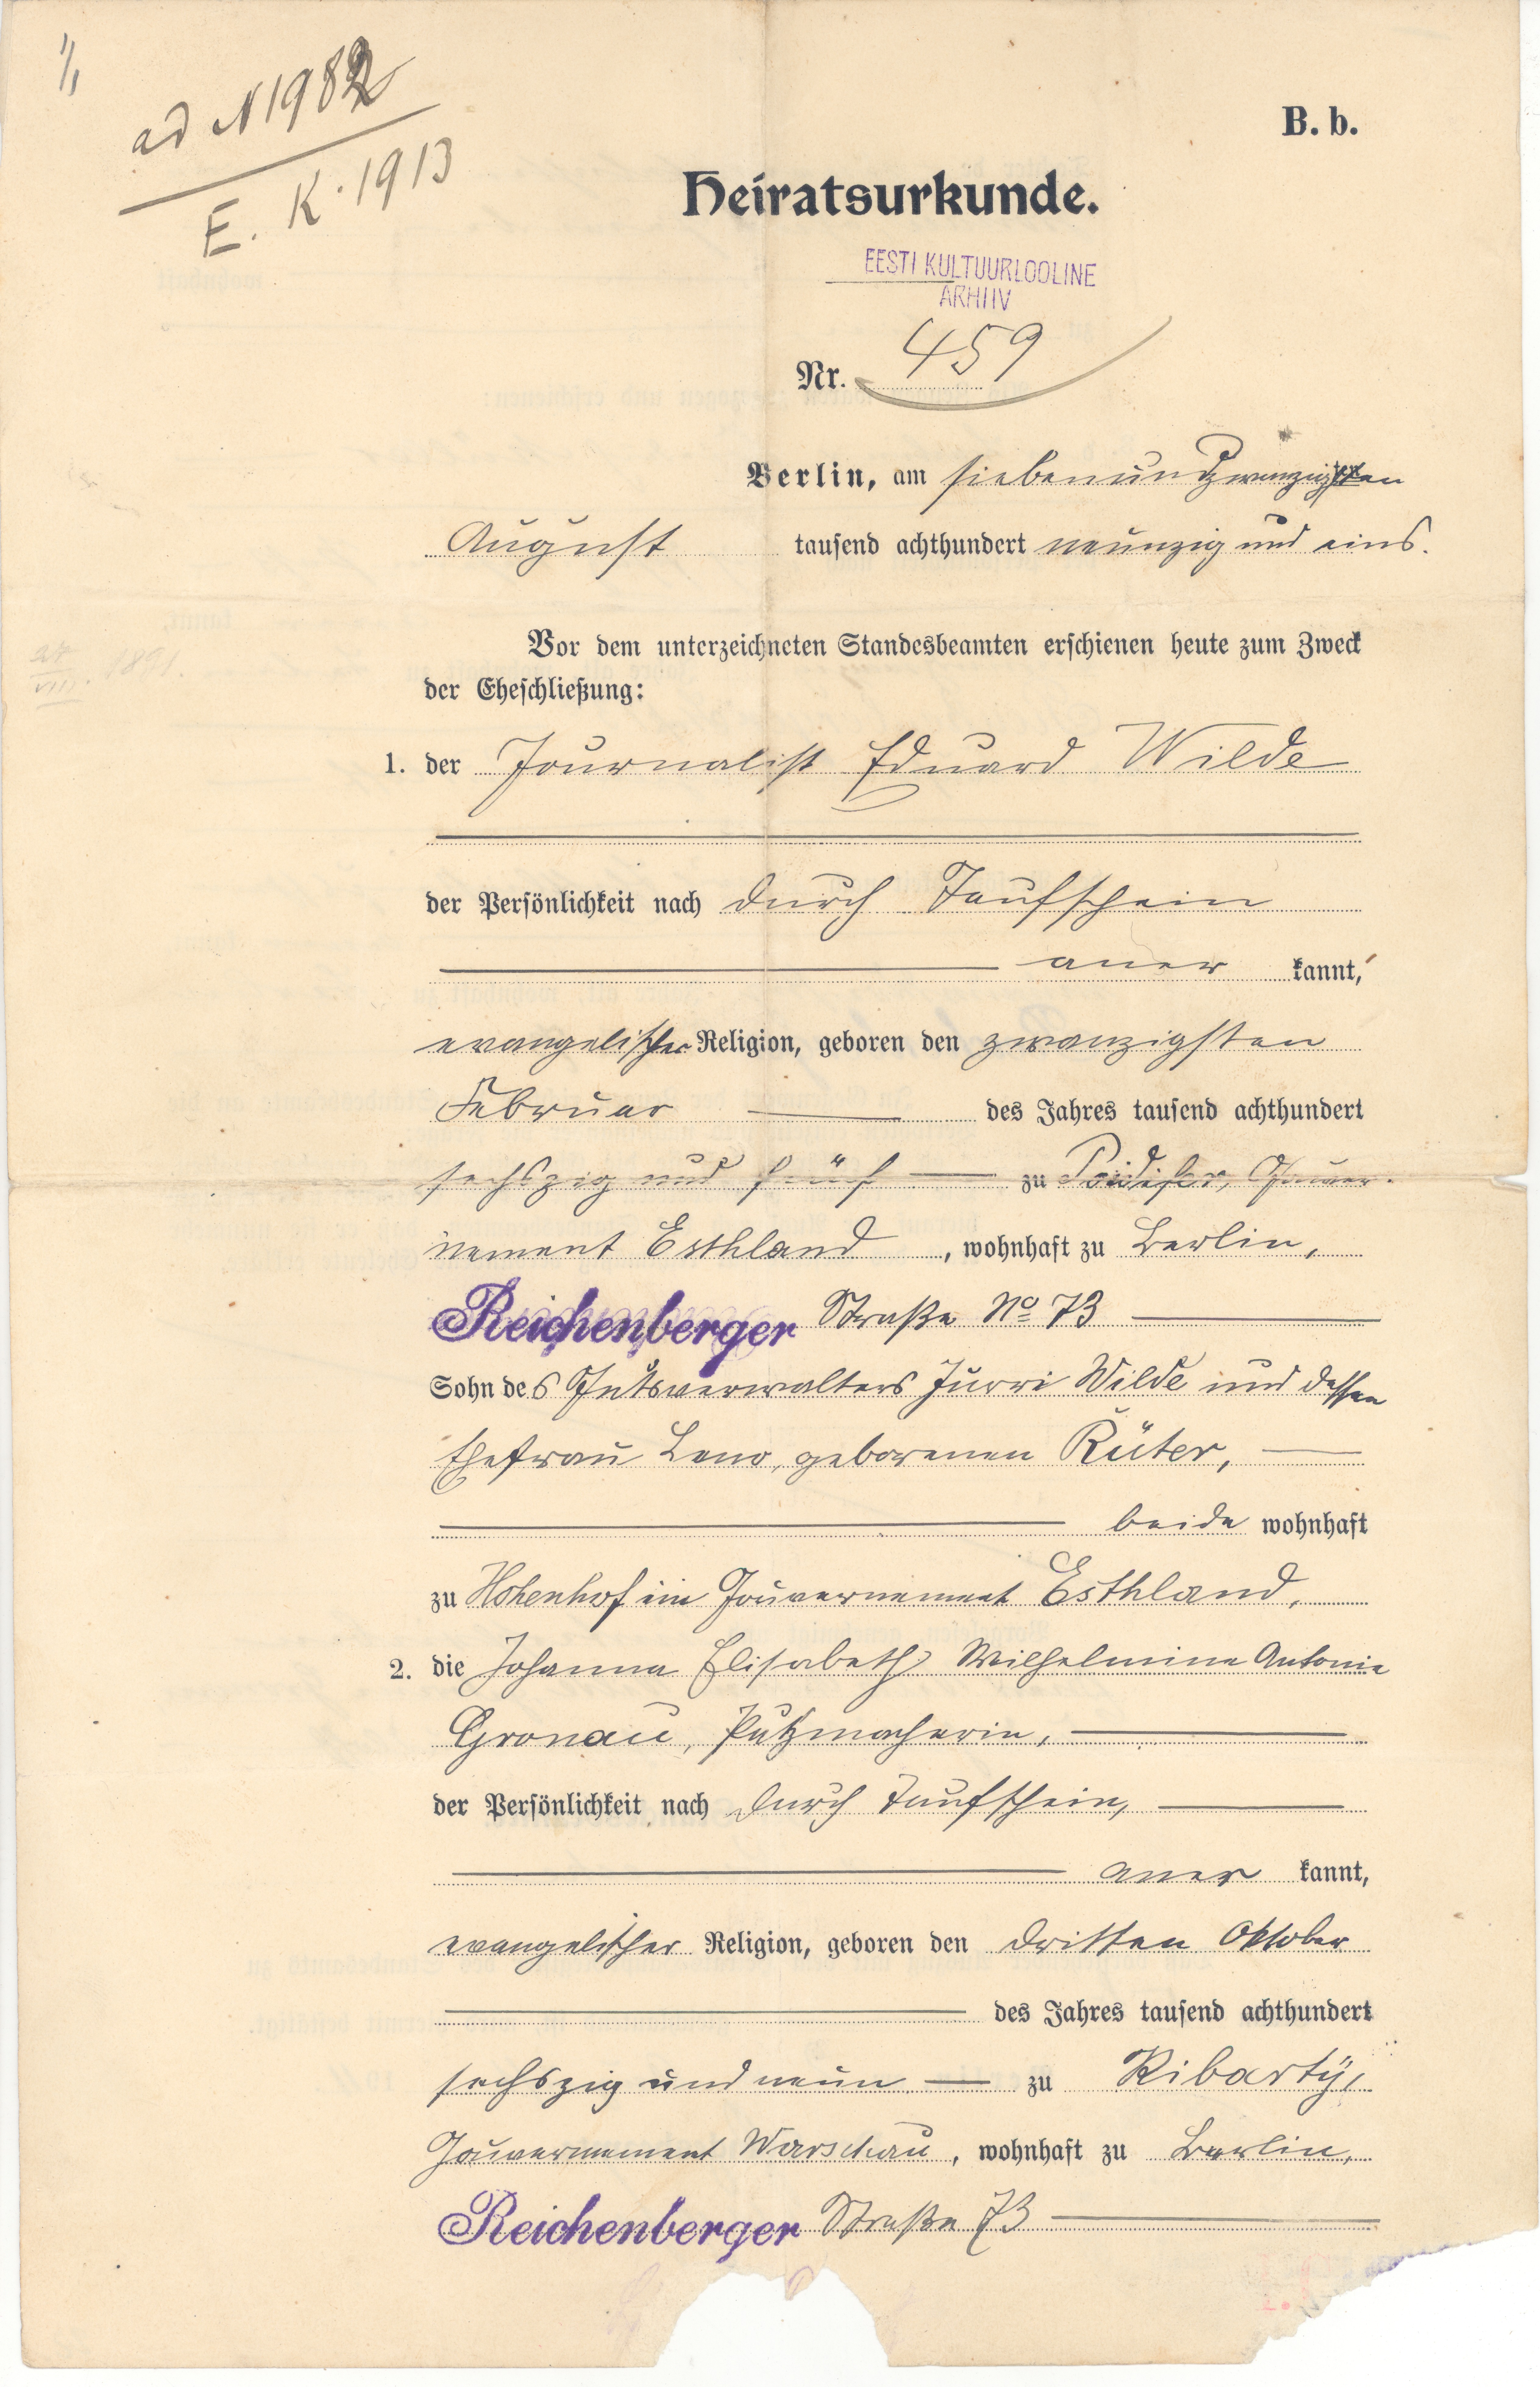 ad N 1982
E. K. 1913
B. b.
Heiratsurkunde.
EESTI KULTUURLOOLINE
ARHIIV
Nr. 459
Berlin, am siebenundzwanzigsten
August tausend achthundert neunzig und eins.
Vor dem unterzeichneten Standesbeamten erschienen heute zum Zweck
der Eheschließung:
27/VIII. 1891.
1. der Journalist Eduard Wilde
der Persönlichkeit nach durch Taufschein
aner kannt,
evangelischer Religion, geboren den zwanzigsten
Februar des Jahres tausend achthundert
sechszig und fünf zu Poidifer, Gouver-
nement Esthland, wohnhaft zu Berlin,
Reichenberger Straße No 73
Sohn des Gutsverwalters Jurri Wilde und dessen
Ehefrau Leno, geborenen Rüter,
beide wohnhaft
zu Hohenhof im Gouvernement Esthland.
2. die Johanna Elisabeth Wilhelmine Antonie
Gronau, Putzmacherin,
der Persönlichkeit nach durch Taufschein,
aner kannt,
evangelischer Religion, geboren den dritten Oktober
des Jahres tausend achthundert
sechszig und neun zu Ribartÿ,
Gouvernement Warschau, wohnhaft zu Berlin,
Reichenberger Straße 73